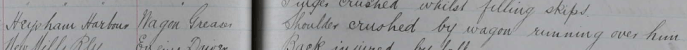 Finger crushed whilst filling skips.
Heysham Harbour Wagon Greaser Shoulder crushed by wagon running over him
Engine Driver Back injured by fall